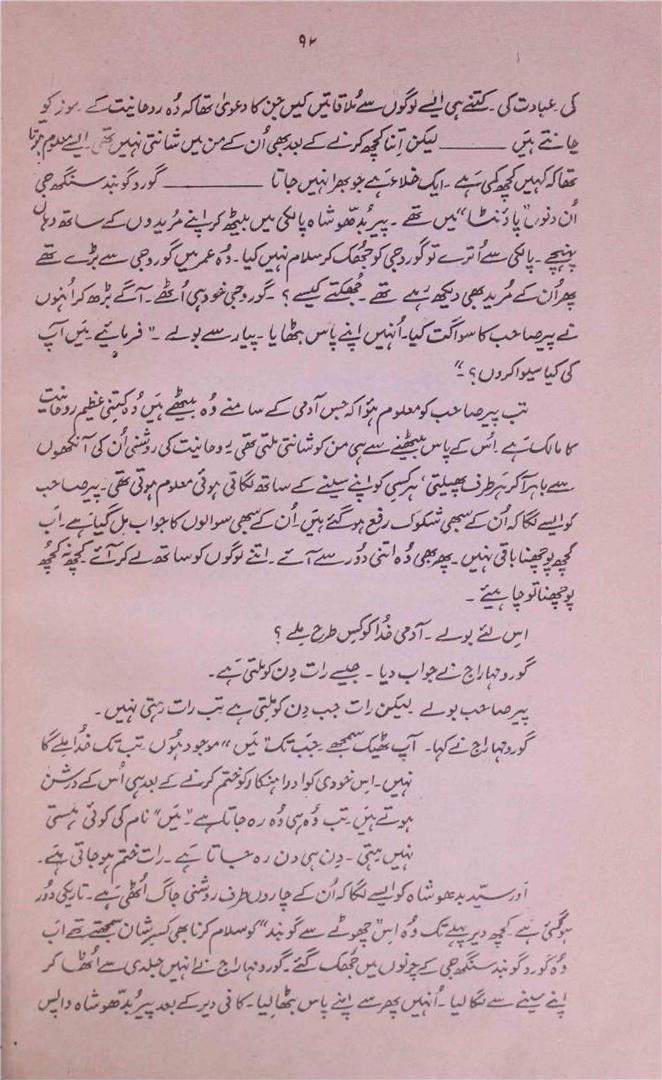 ۹۲
کی عبادت کی۔ کتنے ہی ایسے لوگوں سے مُلاقاتیں کیں جن کا دعویٰ تھا کہ وُہ روحانیت کے رموز کو
جانتے ہیں ——— لیکن اِتنا کچھ کرنے کے بعد بھی اُن کے من میں شانتی نہیں تھی۔ ایسے معلوم ہوتا
تھا کہ کہیں کچھ کمی ہے۔ ایک خلاء ہے جو بھرا نہیں جاتا ——— گورو گوبند سنگھ جی
اُن دنوں "پاؤنٹا" میں تھے۔ پیر بُدّھو شاہ پالکی میں بیٹھ کر اپنے مُریدوں کے ساتھ وہاں
پہنچے۔ پالکی سے اُترے تو گورو جی کو جُھک کر سلام نہیں کیا۔ وُہ عمر میں گورو جی سے بڑے تھے
پھر اُن کے مُرید بھی دیکھ رہے تھے۔ جُھکتے کیسے؟۔ گورو جی خود ہی اُٹھے۔ آگے بڑھ کر اُنہوں
نے پیر صاحب کا سواگت کیا۔ اُنہیں اپنے پاس بٹھایا۔ پیار سے بولے۔ "فرمائیے میں آپ
کی کیا سیوا کروں؟۔"
تب پیر صاحب کو معلوم ہؤا کہ جس آدمی کے سامنے وُہ بیٹھے ہیں وُہ کتنی عظیم روحانیت
کا مالک ہے۔ اُس کے پاس بیٹھنے سے ہی من کو شانتی ملتی تھی۔ روحانیت کی روشنی اُن کی آنکھوں
سے باہر آکر ہر طرف پھیلتی، ہر کسی کو اپنے سینے کے ساتھ لگاتی ہوئی معلوم ہوتی تھی۔ پیر صاحب
کو ایسے لگا کہ اُن کے سبھی شکوک رفع ہو گئے ہیں۔ اُن کے سبھی سوالوں کا جواب مِل گیا ہے۔ اب
کچھ پوچھنا باقی نہیں۔ پھر بھی وُہ اتنی دُور سے آئے۔ اتنے لوگوں کو ساتھ لے کر آئے۔ کچھ نہ کچھ
پوچھنا تو چاہیئے۔
اس لئے بولے۔ آدمی خُدا کو کِس طرح ملے؟
گورو مہاراج نے جواب دیا۔ جیسے رات دِن کو ملتی ہے۔
پیر صاحب بولے۔ لیکن رات جب دِن کو ملتی ہے تب رات رہتی نہیں۔
گورو مہاراج نے کہا۔ آپ ٹھیک سمجھے۔ جب تک "میں" موجود ہوں تب تک خُدا ملے گا
نہیں۔ اس خودی کو اور اہنکار کو ختم کرنے کے بعد ہی اُس کے درشن
ہوتے ہیں۔ تب وُہ ہی وُہ رہ جاتا ہے۔ "میں" نام کی کوئی ہستی
نہیں رہتی۔ دِن ہی دن رہ جاتا ہے۔ رات ختم ہو جاتی ہے۔
اور سیّد بدھو شاہ کو ایسے لگا کہ اُن کے چاروں طرف روشنی جاگ اُٹھی ہے۔ تاریکی دُور
ہو گئی ہے۔ کچھ دیر پہلے تک وُہ اس "چھوٹے سے گوبند" کو سلام کرنا بھی کسرِ شان سمجھتے تھے اب
وُہ گورو گوبند سنگھ جی کے چرنوں میں جُھک گئے۔ گورو مہاراج نے انہیں جلدی سے اُٹھا کر
اپنے سینے سے لگا لیا۔ اُنہیں پھر سے اپنے پاس بٹھا لیا۔ کافی دیر کے بعد پیر بُدّھو شاہ واپس